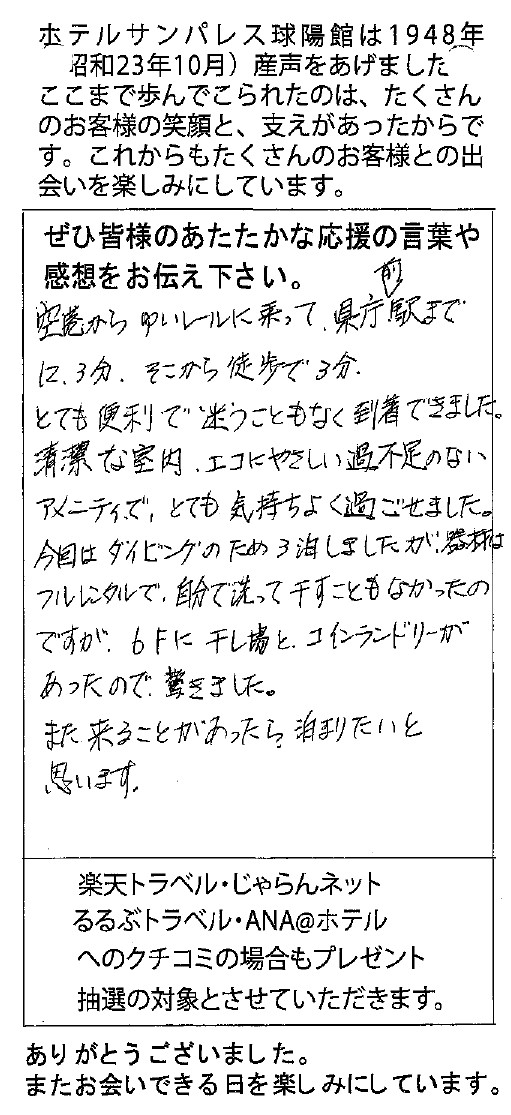 ホテルサンパレス球陽館は1948年
昭和23年10月）産声をあげました
ここまで歩んでこられたのは、たくさん
のお客様の笑顔と、支えがあったからで
す。これからもたくさんのお客様との出
会いを楽しみにしています。
ぜひ皆様のあたたかな応援の言葉や
感想をお伝え下さい。
空港からゆいレールに乗って、県庁前駅まで
12、3分、そこから徒歩で3分、
とても便利で迷うこともなく到着できました。
清潔な室内、エコにやさしい過不足のない
アメニティで、とても気持ちよく過ごせました。
今回はダイビングのため3泊しましたが、器材は
フルレンタルで、自分で洗って干すこともなかったの
ですが、6Fに干し場と、コインランドリーが
あったので、驚きました。
また来ることがあったら、泊まりたいと
思います。
楽天トラベル・じゃらんネット
るるぶトラベル・ANA@ホテル
へのクチコミの場合もプレゼント
抽選の対象とさせていただきます。
ありがとうございました。
またお会いできる日を楽しみにしています。